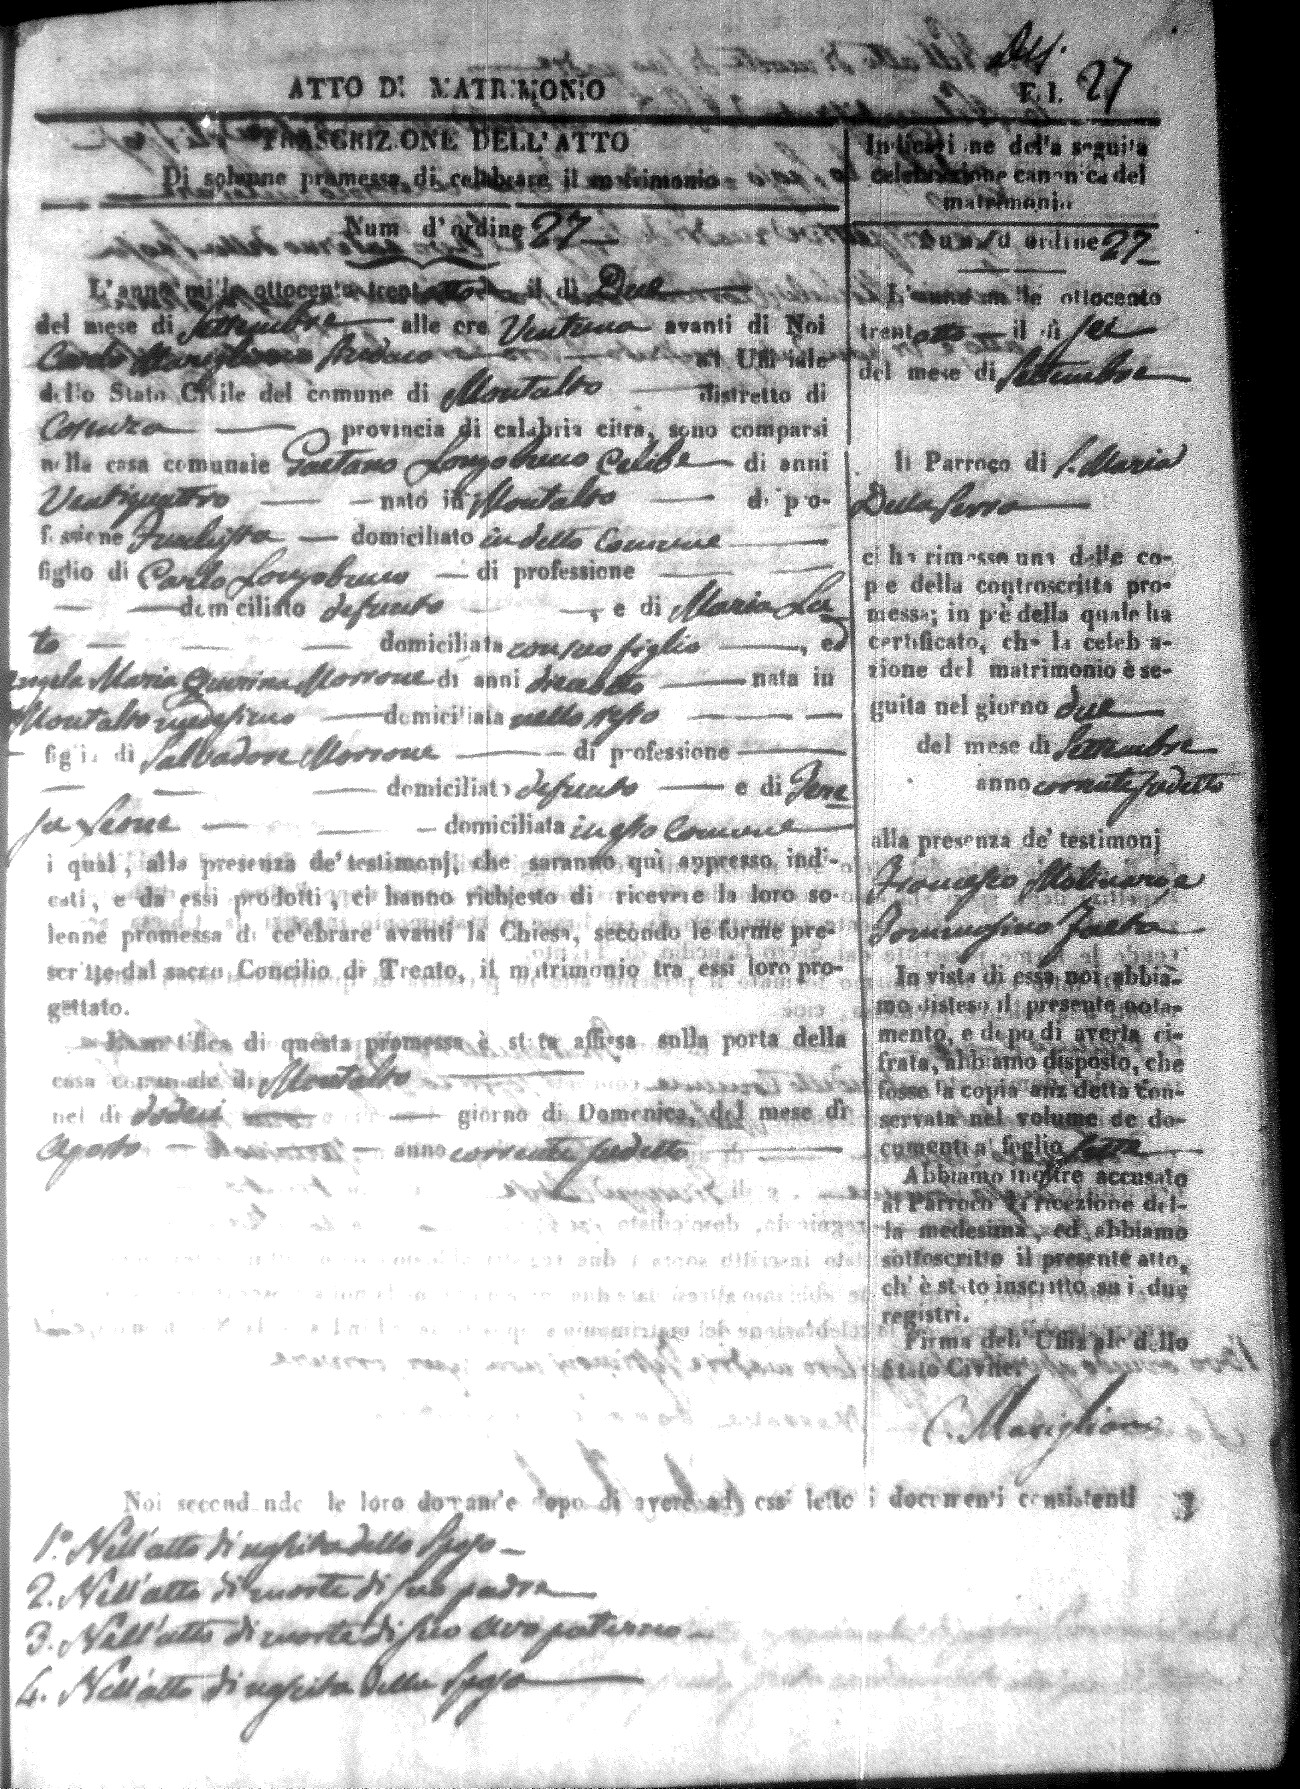 ATTO DI MATRIMONIO
F. l. 27
TRASCRIZIONE DELL'ATTO
Di solenne promessa di celebrare il matrimonio
Num d'ordine 27
L'anno mille ottocento trentotto il dì Due
del mese di Settembre alle ore Ventuna avanti di Noi
Carlo Marigliano Sindaco ed Uffiziale
dello Stato Civile del comune di Montalto distretto di
Cosenza provincia di calabria citra, sono comparsi
nella casa comunale Gaetano Longobuco Celibe di anni
Ventiquattro nato in Montalto di pro-
fessione domiciliato in detto Comune
figlio di Carlo Longobuco di professione
domiciliato defunto, e di Maria
to domiciliata con suo figlio, ed
Angela Maria Morrone di anni nata in
Montalto medesimo domiciliata nello stesso
figlia di Salvadore Morrone di professione
domiciliato defunto e di Tere
sa Leone domiciliata in qsto Comune
i quali, alla presenza de' testimonj, che saranno quì appresso indi-
cati, e da essi prodotti, ci hanno richiesto di ricevere la loro so-
lenne promessa di celebrare avanti la Chiesa, secondo le forme pre-
scritte dal sacro Concilio di Trento, il matrimonio tra essi loro pro-
gettato.
La notifica di questa promessa è stata affissa sulla porta della
casa comunale di Montalto
nel dì dodeci giorno di Domenica, del mese dì
Agosto anno corrente sudetto
Noi secondando le loro domande dopo di avere ad essi letto i documenti consistenti
1.° Nell'atto di nascita dello Sposo
2. Nell'atto di morte di suo padre
3. Nell'atto di morte di suo avo paterno
4. Nell'atto di nascita della Sposa
Indicazione della seguita
celebrazione canonica del
matrimonio
Num d'ordine 27
L'anno mille ottocento
trentotto il dì sei
del mese di Settembre
Il Parroco di S. Maria
Della Serra
ci ha rimesso una delle co-
pie della controscritta pro-
messa; in piè della quale ha
certificato, che la celebra-
zione del matrimonio è se-
guita nel giorno due
del mese di Settembre
anno corrente sudetto
alla presenza de' testimonj
Francesco Molinaro e
Tommasino
In vista di essa noi abbia-
mo disteso il presente nota-
mento, e dopo di averla ci-
frata, abbiamo disposto, che
fosse la copia anzidetta con-
servata nel volume de do-
cumenti al foglio
Abbiamo inoltre accusato
al Parroco la ricezione del-
la medesima, ed abbiamo
sottoscritto il presente atto,
ch' è stato inscritto su i due
registri.
Firma dell' Uffiziale dello
Stato Civile.
C. Marigliano